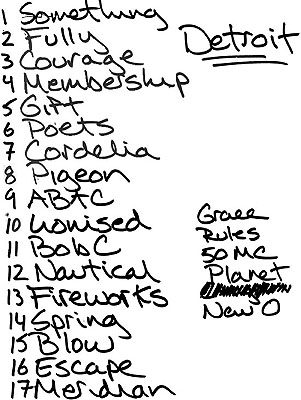 1 Something
2 Fully
3 Courage
4 Membership
5 Gift
6 Poets
7 Cordelia
8 Pigeon
9 ABAC
10 Lionised
11 BobC
12 Nautical
13 Fireworks
14 Spring
15 Blow
16 Escape
17 Meridian
Detroit
Grace
Rules
50 MC
Planet
New O